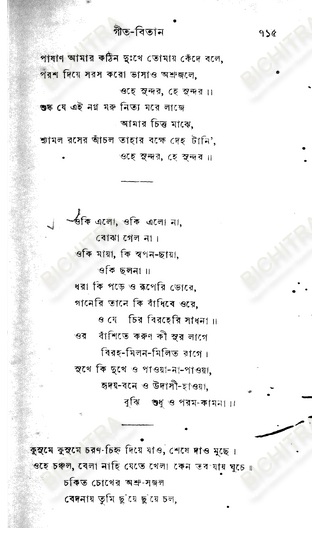 গীত-বিতান ৭১৫
পাষাণ আমার কঠিন দুঃখে তোমায় কেঁদে বলে,
পরশ দিয়ে সরস করো ভাসাও অশ্রুজলে,
ওহে সুন্দর, হে সুন্দর ॥
শুষ্ক যে এই নগ্ন মরু নিত্য মরে লাজে
আমার চিত্ত মাঝে,
শ্যামল রসের আঁচল তাহার বক্ষে দেহ টানি',
ওহে সুন্দর, হে সুন্দর ॥
ওকি এলো, ওকি এলো না,
বোঝা গেল না।
ওকি মায়া, কি স্বপন-ছায়া,
ওকি ছলনা ॥
ধরা কি পড়ে ও রূপেরি ডোরে,
গানেরি তানে কি বাঁধিবে ওরে,
ও যে চির বিরহেরি সাধনা ॥
ওর বাঁশিতে করুণ কী সুর লাগে
বিরহ-মিলন-মিলিত রাগে।
সুখে কি দুখে ও পাওয়া-না-পাওয়া,
হৃদয়-বনে ও উদাসী-হাওয়া,
বুঝি শুধু ও পরম-কামনা ॥
কুসুমে কুসুমে চরণ-চিহ্ন দিয়ে যাও, শেষে দাও মুছে।
ওহে চঞ্চল, বেলা নাহি যেতে খেলা কেন তব যায় ঘুচে॥
চকিত চোখের অশ্রু-সজল
বেদনায় তুমি ছুঁয়ে ছুঁয়ে চল,
BICHITRA
BICHITRA
BICHITRA
BICHITRA